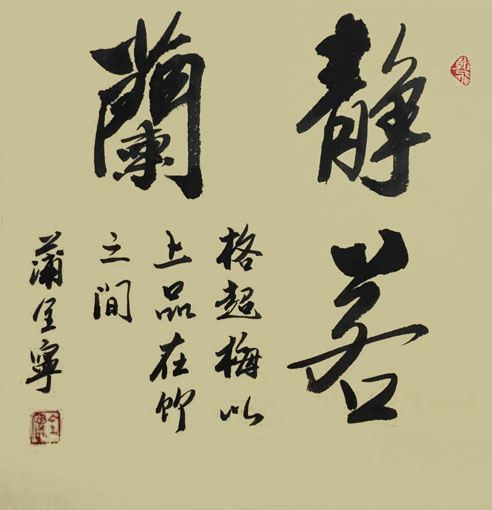 靜若
蘭
格超梅以
上品在竹
之間
蒲全寧